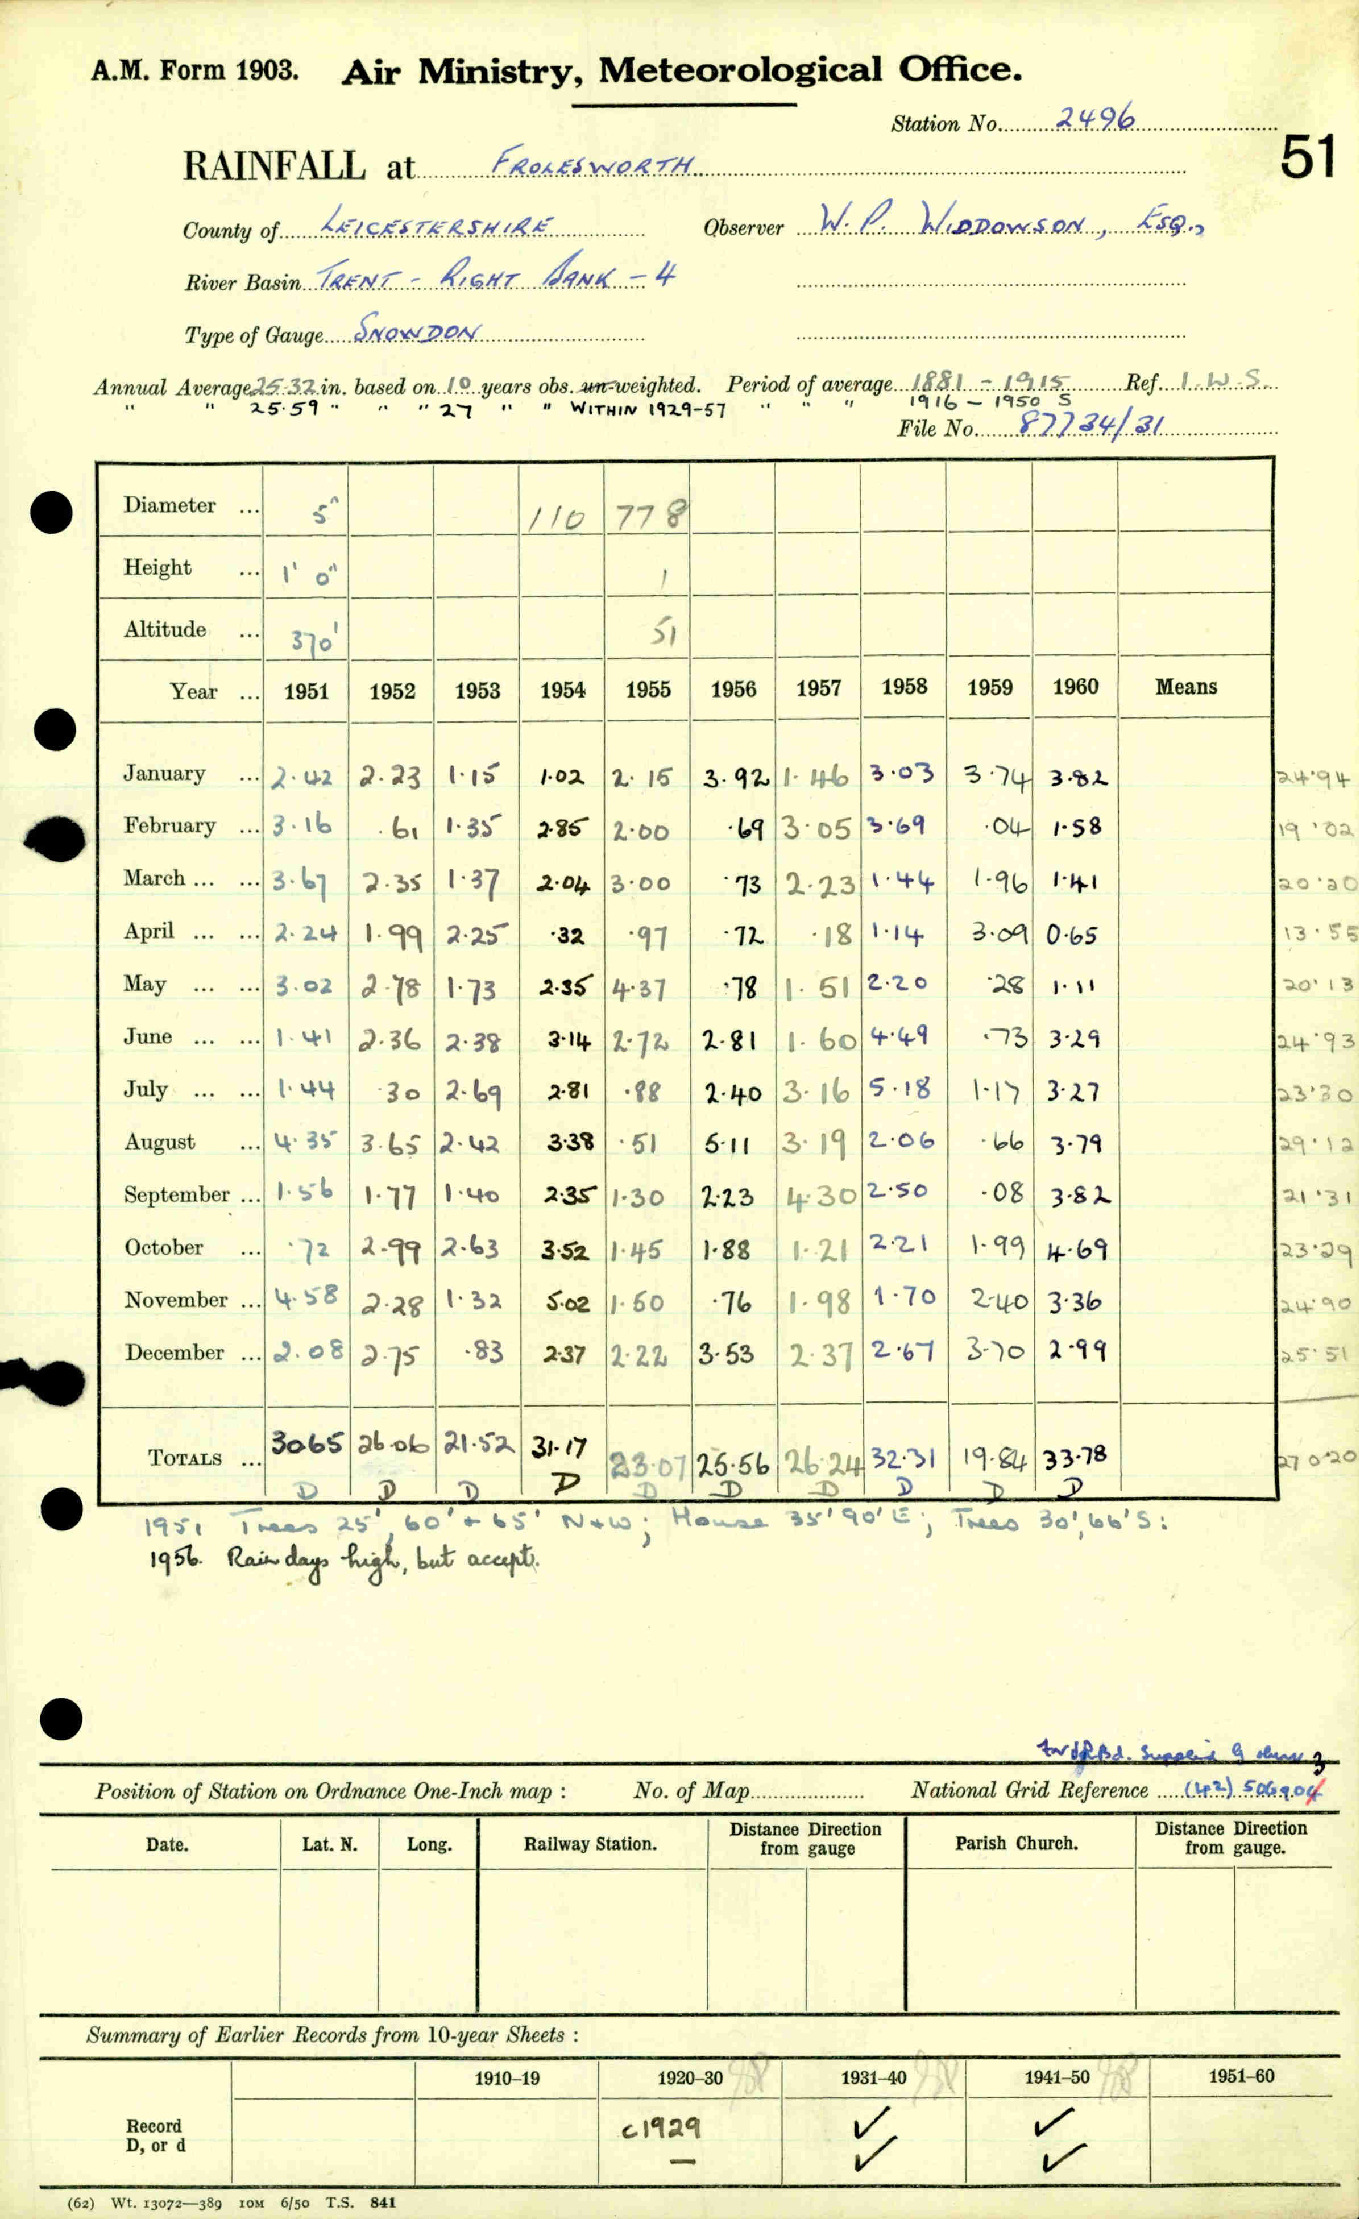 A.M. Form 1903. Air Ministry, Meteorological Office.
Station No. 2496
51
RAINFALL at FROLESWORTH
County of LEICESTERSHIRE Observer W. P. WIDDOWSON, ESQ.,
River Basin TRENT - RIGHT BANK - 4
Type of Gauge SNOWDON
Annual Average 25.32 in. based on 10 years obs. un-weighted. Period of average 1881 - 1915 Ref. I.W.S.
" " 25.59 " " " 27 " " WITHIN 1929-57 " " " 1916 - 1950 S
File No. 87734/31
Diameter ... 5" 110 778
Height ... 1' 0" 1
Altitude ... 370' 51
Year ... 1951 1952 1953 1954 1955 1956 1957 1958 1959 1960 Means
January ... 2.42 2.23 1.15 1.02 2.15 3.92 1.46 3.03 3.74 3.82 24.94
February ... 3.16 .61 1.35 2.85 2.00 .69 3.05 3.69 .04 1.58 19.02
March ... ... 3.67 2.35 1.37 2.04 3.00 .73 2.23 1.44 1.96 1.41 20.20
April ... ... 2.24 1.99 2.25 .32 .97 .72 .18 1.14 3.09 0.65 13.55
May ... ... 3.02 2.78 1.73 2.35 4.37 .78 1.51 2.20 .28 1.11 20.13
June ... ... 1.41 2.36 2.38 3.14 2.72 2.81 1.60 4.49 .73 3.29 24.93
July ... ... 1.44 .30 2.69 2.81 .88 2.40 3.16 5.18 1.17 3.27 23.30
August ... 4.35 3.65 2.42 3.38 .51 5.11 3.19 2.06 .66 3.79 29.12
September ... 1.56 1.77 1.40 2.35 1.30 2.23 4.30 2.50 .08 3.82 21.31
October ... .72 2.99 2.63 3.52 1.45 1.88 1.21 2.21 1.99 4.69 23.29
November ... 4.58 2.28 1.32 5.02 1.50 .76 1.98 1.70 2.40 3.36 24.90
December ... 2.08 2.75 .83 2.37 2.22 3.53 2.37 2.67 3.70 2.99 25.51
TOTALS ... 30.65 26.06 21.52 31.17 23.07 25.56 26.24 32.31 19.84 33.78 270.20
D D D D D D D D D D
1951 Trees 25', 60' + 65' N+W; House 35' 90' E; Trees 30', 66' S:
1956. Rain days high, but accept.
Position of Station on Ordnance One-Inch map : No. of Map National Grid Reference (42) 506904 3
Date. Lat. N. Long. Railway Station. Distance Direction from gauge Parish Church. Distance Direction from gauge.
Summary of Earlier Records from 10-year Sheets :
1910–19 1920–30 1931–40 1941–50 1951–60
Record c1929 ✓ ✓
D, or d — ✓ ✓
(62) Wt. 13072—389 10M 6/50 T.S. 841